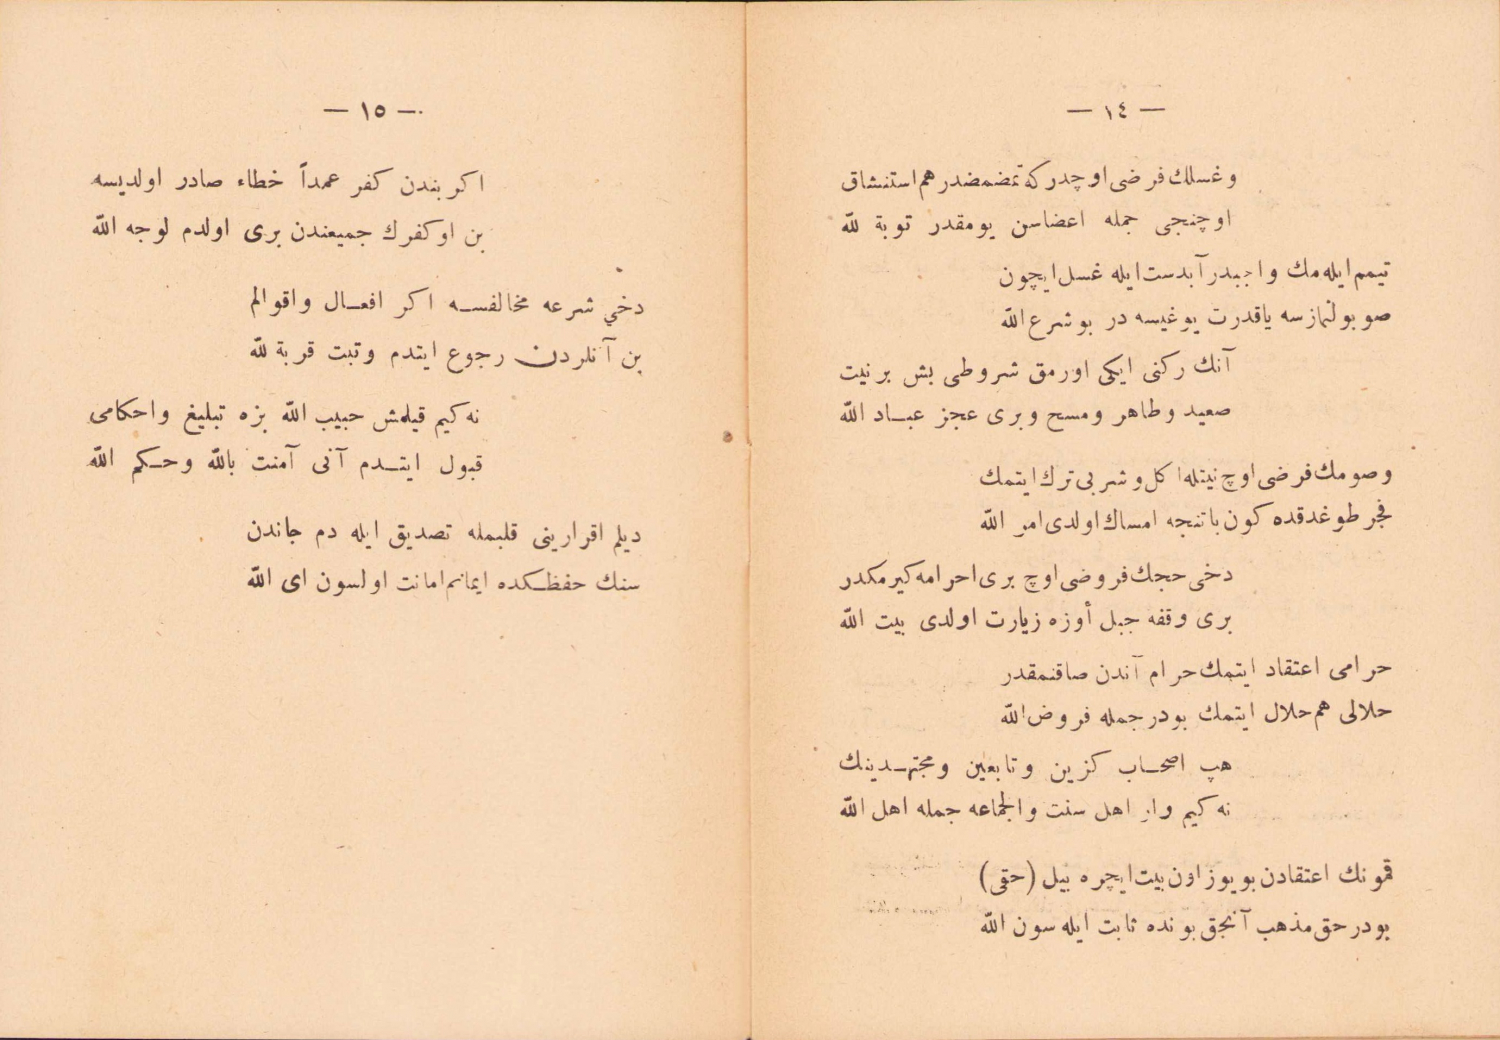 — ١٤ —
وغسلك فرضى اوچدركه تمضمضدر هم استنشاق
اوچنجى جمله اعضاسن يومقدر توبة لله
تيمم ايله مك واجبدر آبدست ايله غسل ايچون
صو بولنمازسه ياقدرت يوغيسه در بو شرع الله
آنك ركنى ايكى اورمق شروطى بش بر نيت
صعيد وطاهر ومسح وبرى عجز عبـاد الله
وصومك فرضى اوچ نيتله اكل وشربى ترك ايتمك
فجر طوغدقده كون باتنجه امساك اولدى امر الله
دخى حجك فروضى اوچ برى احرامه كيرمكدر
برى وقفه جبل أوزه زيارت اولدى بيت الله
حرامى اعتقاد ايتمك حرام آندن صاقنمقدر
حلالى هم حلال ايتمك بودر جمله فروض الله
هپ اصحـاب كزين وتابعين ومجتهـدينك
نه كيم وار اهل سنت والجماعه جمله اهل الله
قمونك اعتقادن بو يوز اون بيت ايچره بيل (حقى)
بودر حق مذهب آنجق بونده ثابت ايله سون الله
— ١٥ —
اكر بندن كفر عمداً خطاء صادر اولديسه
بن اوكفرك جميعندن برى اولدم لوجه الله
دخي شرعه مخالفسـه اكر افعـال واقوالم
بن آنلردن رجوع ايتدم وتبت قربة لله
نه كيم قيلمش حبيب الله بزه تبليغ واحكامى
قبول ايتـدم آنى آمنت بالله وحـكم الله
ديلم اقرارينى قلبمله تصديق ايله دم جاندن
سنك حفظـكده ايمانم امانت اولسون اى الله